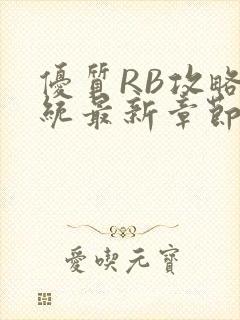 優質RB攻略
統最新章節
愛喫元寶